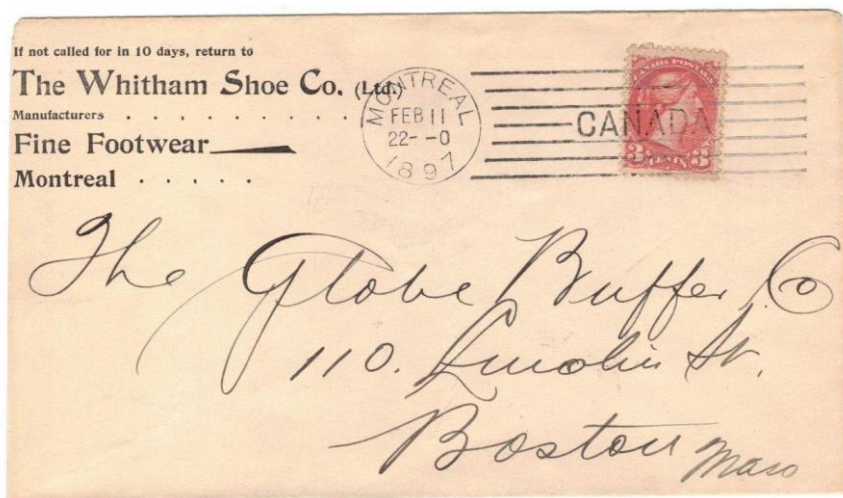 If not called for in 10 days, return to
The Whitham Shoe Co. (Ltd.)
Manufacturers . . . . . . . . . .
Fine Footwear
Montreal . . . . .
MONTREAL
FEB 11
22--0
1897
CANADA
CANADA POSTAGE
3 CENTS 3
The Globe Buffer Co
110. Lincoln St.
Boston Mass